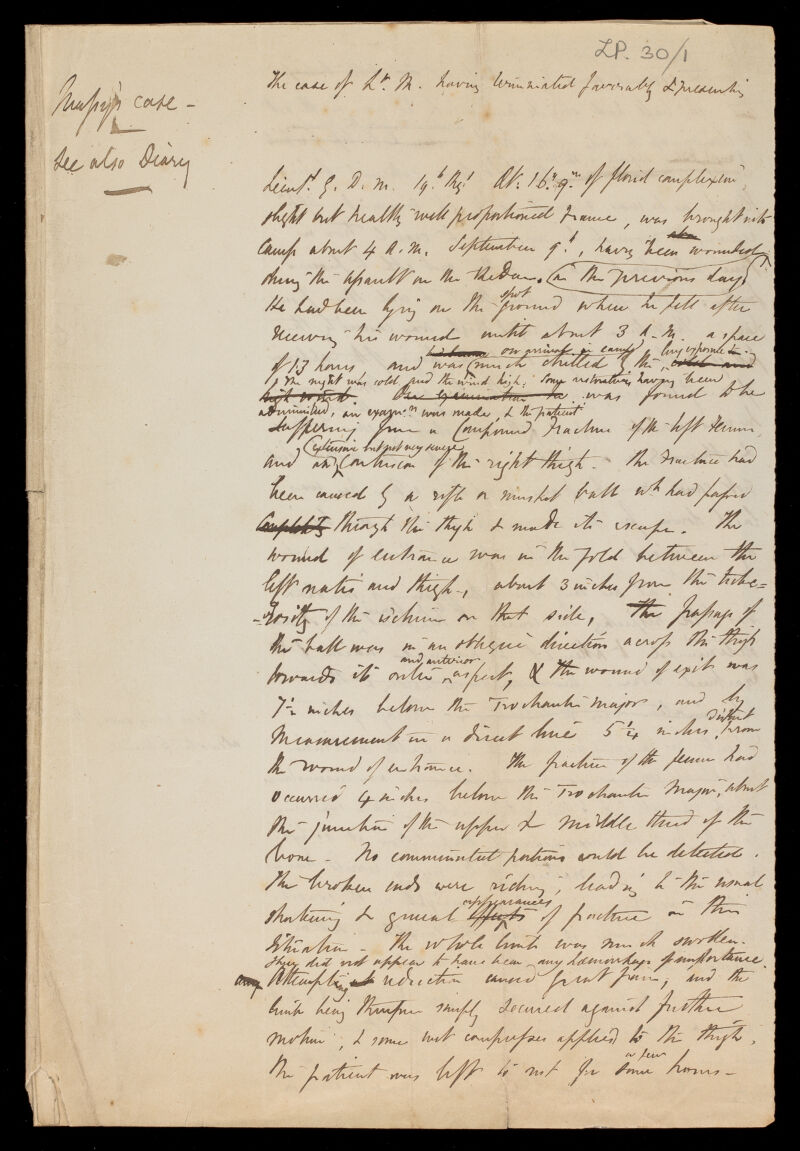 LP. 30/1
Massy's case -
See also Diary
The case of Lt. M. having terminated favorably & presenting
Lieut. G. D. M. 19th Regt. Æt. 16 9/12 of florid complexion
slight but healthy well proportioned frame, was brought into
camp about 4 A.M. September 9th, having been wounded
during the assault on the Redan. on the previous day
He had been lying on the spot ground where he fell after
receiving his wound until about 3 A.M. a space
of 13 hours and was on arrival in camp much chilled by the long exposure to cold and
; the night was cold and the wind high; some restoratives having been
high wind. One Examination he was found to be
administered, an exam.n was made, & the patient
suffering from a Compound Fracture of the left Femur
and extensive but not very severe contusion of the right thigh - The Fracture had
been caused by a rifle or musket ball wh had passed
completely through the thigh & made its escape. The
wound of entrance was in the fold between the
left natis and thigh, about 3 inches from the tube-
-rosity of the ischium on that side, The passage of
the ball was in an oblique direction across the thigh
towards its outer and anterior aspect, & the wound of exit was
7½ inches below the Trochanter major, and by
measurement in a direct line 5¼ inches distant from
the wound of entrance. The fracture of the femur had
occurred 4 inches below the Trochanter major, about
the junction of the upper & middle third of the
bone - No comminuted portions could be detected.
The broken ends were riding, leading to the usual
shortening & general appearances effects of fracture in this
situation - The whole limb was much swollen.
There did not appear to have been any hæmorrhage of importance.
any Attempting at reduction caused great pain, and the
limb being therefore simply secured against further
motion, & some wet compresses applied to the thigh,
the patient was left to rest for a few some hours -